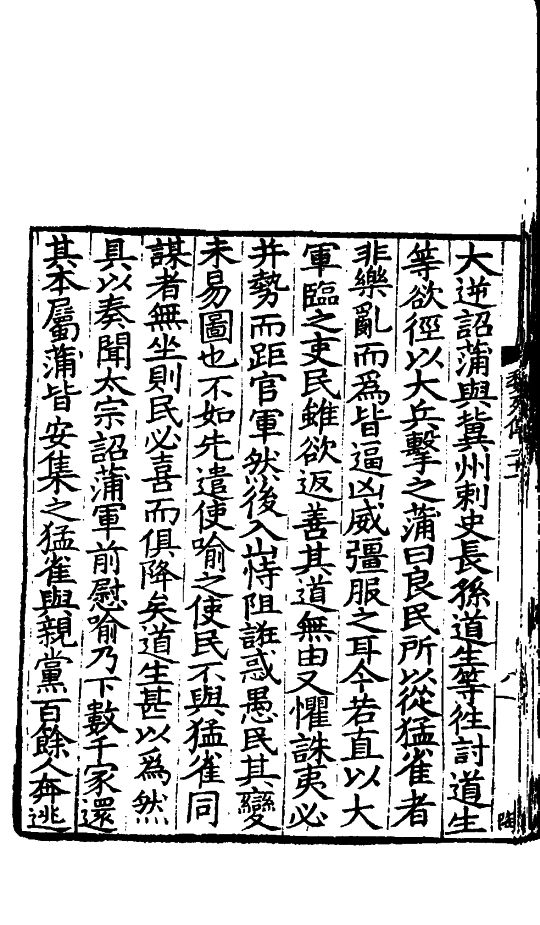 大逆詔蒲與冀州刺史長孫道生等往討道生
等欲徑以大兵擊之蒲曰良民所以從猛雀者
非樂亂而爲皆逼凶威彊服之耳今若直以大
軍臨之吏民雖欲返善其道無由又懼誅夷必
并勢而距官軍然後入山恃阻誑惑愚民其變
未易圖也不如先遣使喻之使民不與猛雀同
謀者無坐則民必喜而俱降矣道生甚以爲然
具以奏聞太宗詔蒲軍前慰喻乃下數千家還
其本屬蒲皆安集之猛雀與親黨百餘人奔逃